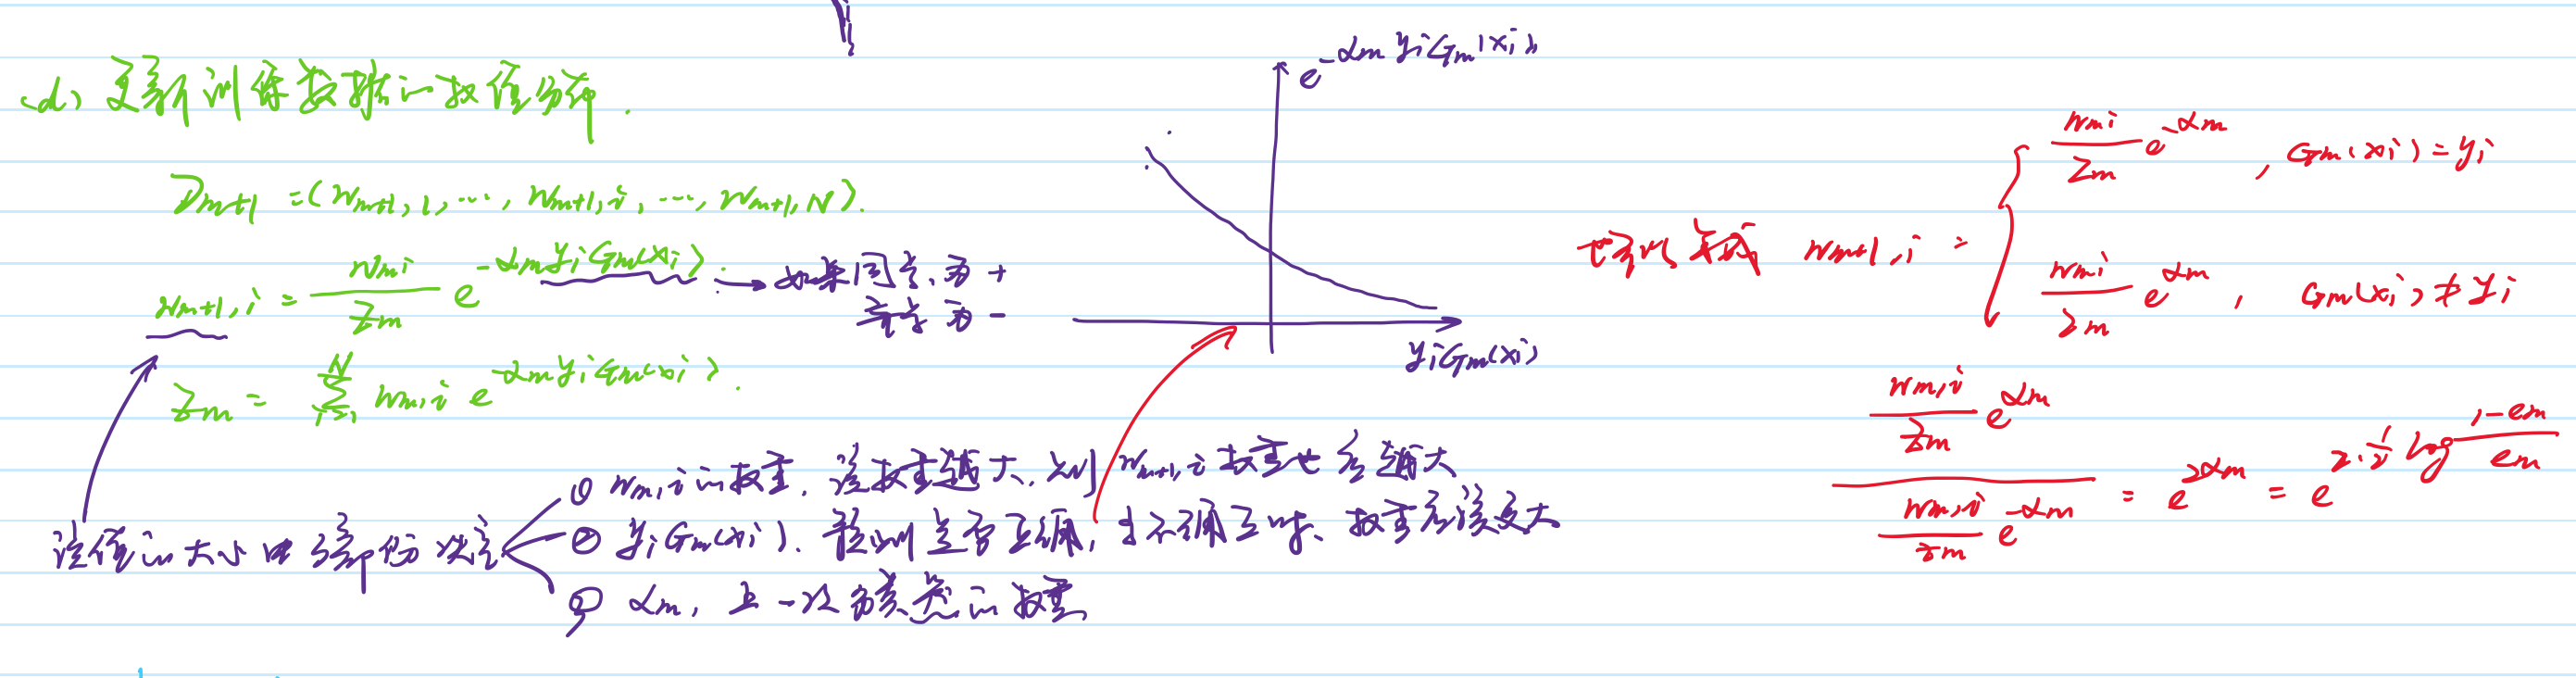 (d) 更新训练数据的权值分布.
D_{m+1} = (w_{m+1,1}, …, w_{m+1,i}, …, w_{m+1,N}).
w_{m+1,i} = \frac{w_{mi}}{Z_m} e^{-α_m y_i G_m(x_i)}. → 如果同号, 为 +
异号 为 -
Z_m = \sum_{i=1}^{N} w_{m,i} e^{-α_m y_i G_m(x_i)}.
该值的大小由 3部份决定
① w_{m,i} 的权重, 该权重越大, 则 w_{m+1,i} 权重也会越大
② y_i G_m(x_i). 预测是否正确, 当不正确时, 权重应该变大
③ α_m, 上一次分类器的权重
e^{-α_m y_i G_m(x_i)}
y_i G_m(x_i)
也可以写成 w_{m+1,i} = { \frac{w_{mi}}{Z_m} e^{-α_m}, G_m(x_i) = y_i
\frac{w_{mi}}{Z_m} e^{α_m}, G_m(x_i) ≠ y_i
\frac{\frac{w_{m,i}}{Z_m} e^{α_m}}{\frac{w_{m,i}}{Z_m} e^{-α_m}} = e^{2α_m} = e^{2·\frac{1}{2} log \frac{1-e_m}{e_m}}